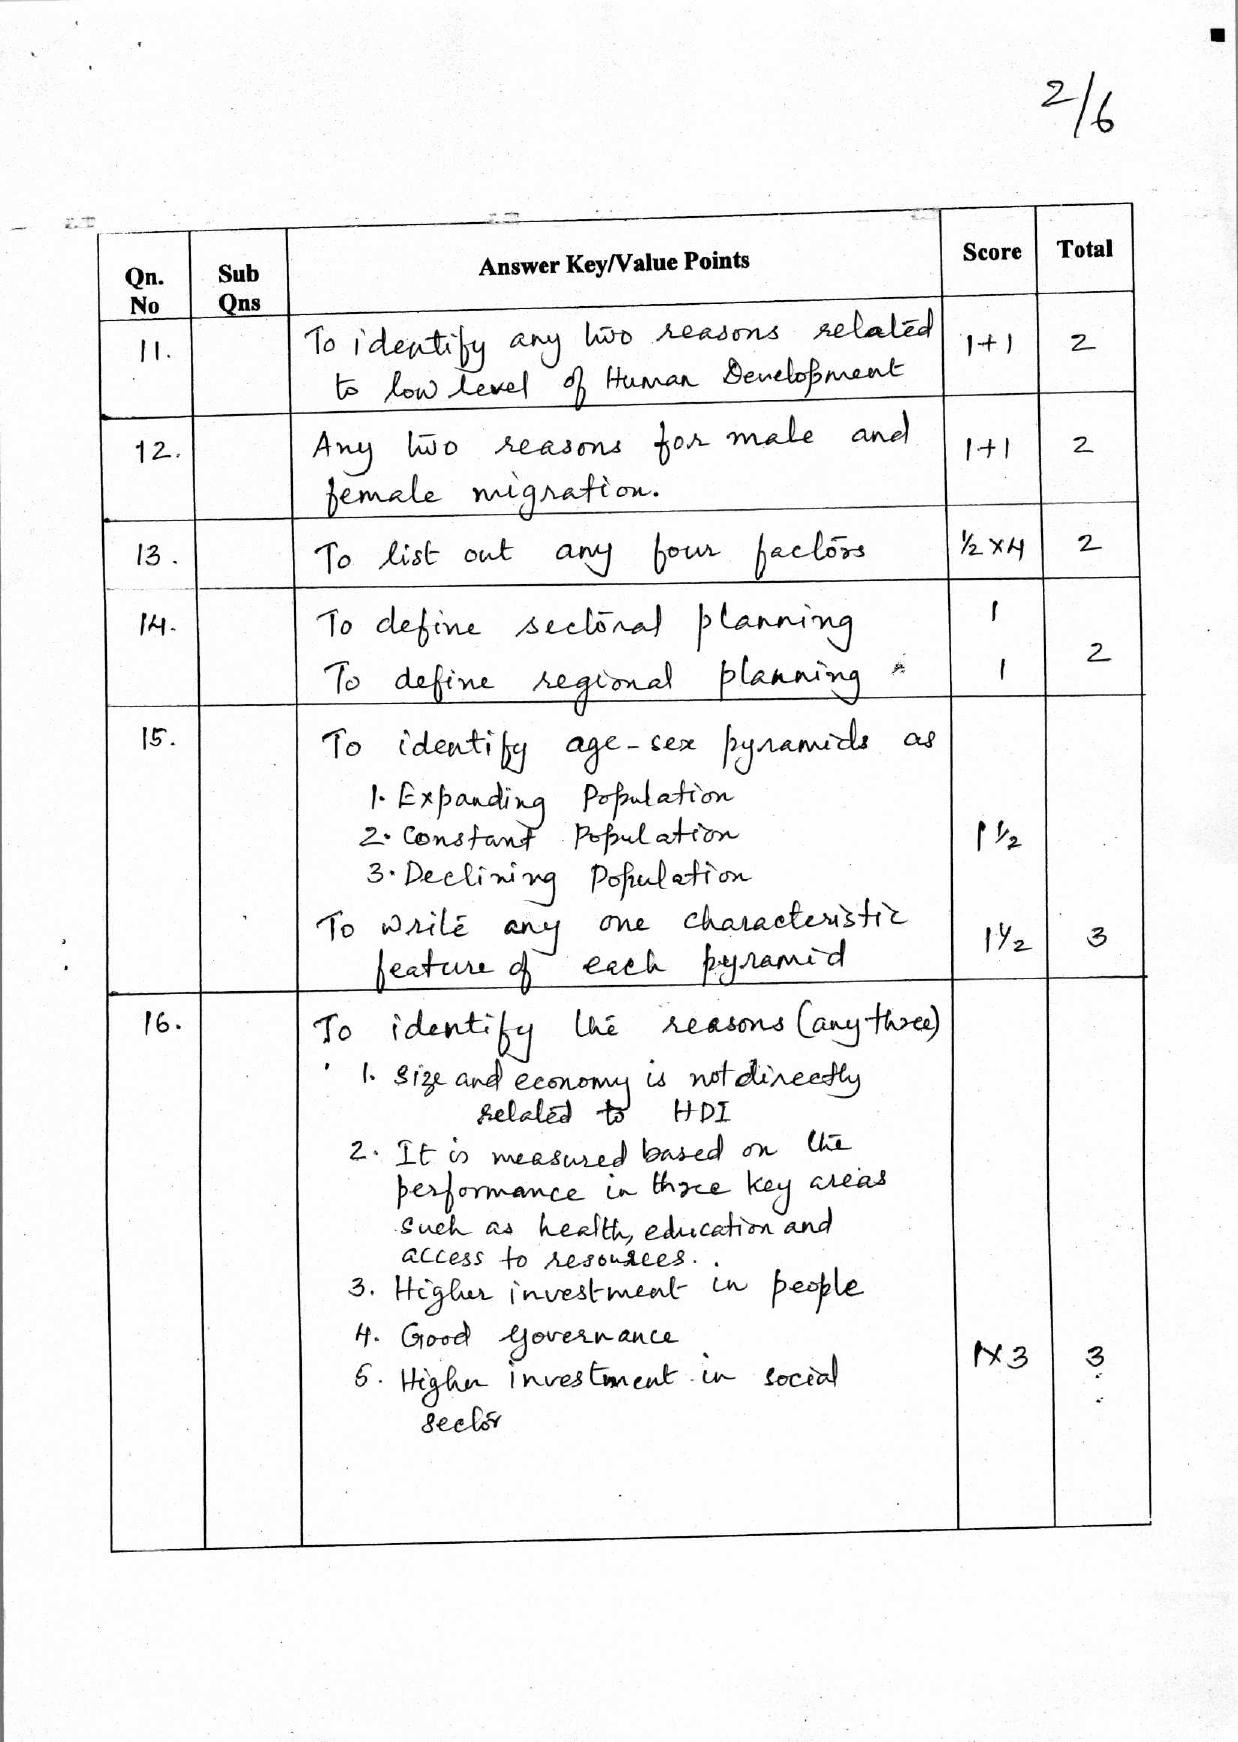 2/6
Qn. No Sub Qns Answer Key/Value Points Score Total
11. To identify any two reasons related 1+1 2
to low level of Human Development
12. Any two reasons for male and 1+1 2
female migration.
13. To list out any four factors ½×4 2
14. To define sectoral planning 1
To define regional planning 1 2
15. To identify age-sex pyramids as
1. Expanding Population
2. Constant Population 1½
3. Declining Population
To write any one characteristic
feature of each pyramid 1½ 3
16. To identify the reasons (any three)
1. Size and economy is not directly
related to HDI
2. It is measured based on the
performance in three key areas
such as health, education and
access to resources.
3. Higher investment in people
4. Good governance 1×3 3
5. Higher investment in social
sector